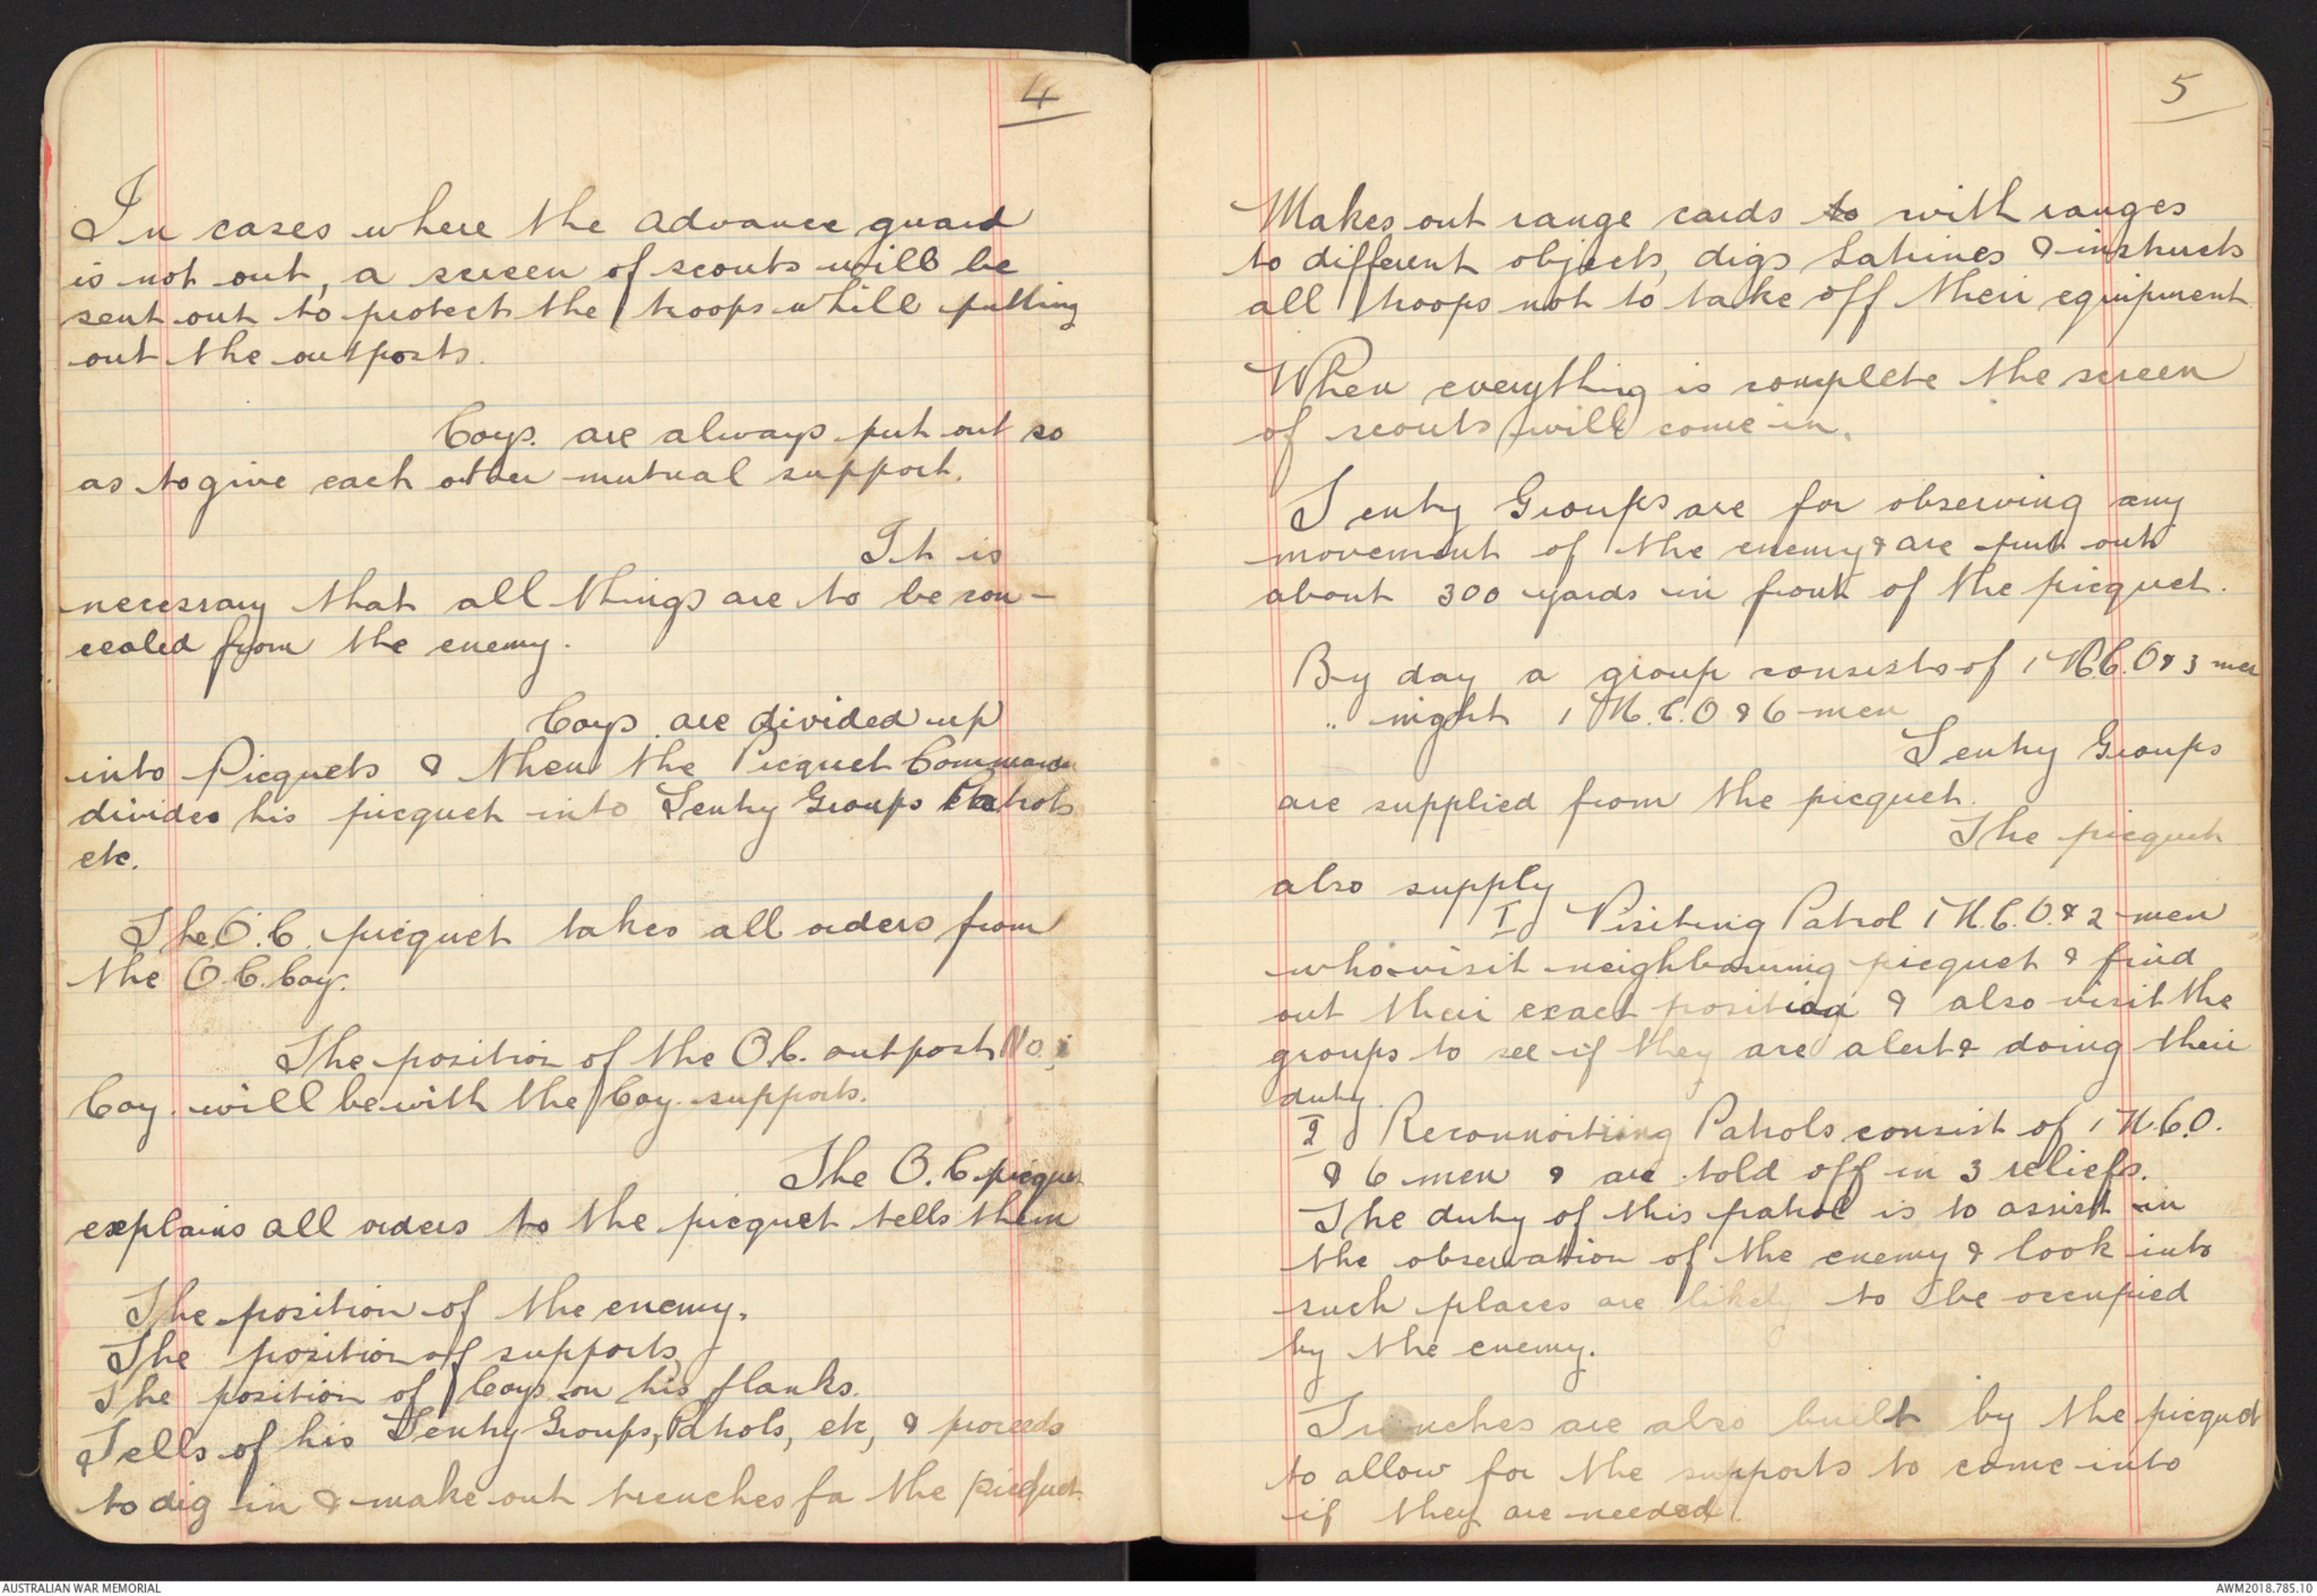 4
In cases where the advance guard
is not out, a screen of scouts will be
sent out to protect the troops whill putting
out the outposts.
Coys. are always put out so
as to give each other mutual support.
It is
necessary that all things are to be con-
cealed from the enemy.
Coys. are divided up
into Picquets & then the Picquet Commander
divides his picquet into Sentry Groups Patrols
etc.
The O.C. picquet takes all orders from
the O.C. Coy.
The position of the O.C. outpost No 1
Coy. will be with the Coy. supports.
The O.C. picquet
explains all orders to the picquet tells them
The position of the enemy.
The position of supports
The position of Coys on his flanks.
Tells of his Sentry Groups, Patrols, etc, & proceeds
to dig in & make out trenches for the picquet.
5
Makes out range cards to with ranges
to different objects, digs Latrines & instructs
all troops not to take off their equipment
When everything is complete the screen
of scouts will come in.
Sentry Groups are for observing any
movement of the enemy & are put out
about 300 yards in front of the picquet.
By day a group consists of 1 N.C.O & 3 men
" night 1 N.C.O & 6 men
Sentry Groups
are supplied from the picquet.
The picquet
also supply
I) Visiting Patrol 1 N.C.O. & 2 men
who visit neighbouring picquet & find
out their exact position & also visit the
groups to see if they are alert & doing their
duty.
2) Reconnoitring Patrols consist of 1 N.C.O.
& 6 men & are told off in 3 reliefs.
The duty of this patrol is to assist in
the observation of the enemy & look into
such places are likely to be occupied
by the enemy.
Trenches are also built by the picquet
to allow for the supports to come into
if they are needed.
AUSTRALIAN WAR MEMORIAL
AWM2018.785.10